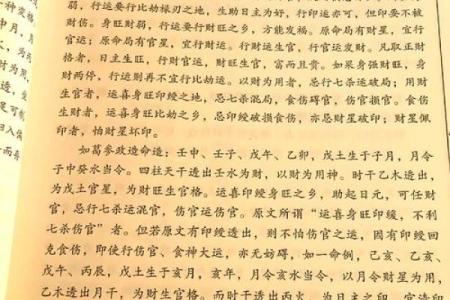 弱，行运要行比劫禄刃之地，生助日主为好，行印运亦可，但印委不被
财伤。身旺财弱，行运要行财旺之乡，方能发福。原命局有财星，宜行
官运；原命局有官星，宜行财运。行财运生官，行官运发财。凡取正财
格者，日主生旺，行财官运，财旺生官，富而且贵。如果身强财旺，身
财两停，行运则再不宜行比劫运。以财为用者，忌行七杀运破局；用财
生官者，运喜身旺印绶之地，忌七杀混局，食伤碍官，伤官损官。食伤
生财者，运喜身旺比劫之乡，忌印绶破损食伤，亦忌财星破印；财星佩
印者，怕财星坏印。
如葛参政造命造：壬申、壬子、戊午、乙卯，戊土生于子月，月令
子中癸水当令。四柱天干透出壬水为财，以财为用神。时干乙木透出，
为戊土官星，为财旺生官格。运喜印绶身旺之乡，助起日元，可任财
官，忌行七杀运混官，伤官运伤官。原文所谓“运喜身旺印绶，不利
七杀伤官”者。但若原文有印绶透出，则不怕伤官之运，因有印绶回
克食伤，即使行伤官、食神大运，亦无妨碍，如一命例，己亥、乙亥、
戊午、丙辰，戊土生于亥月，亥年，月令亥水当令，以月令财星为用，
乙木透出月干，为财旺生官格。而时干透出丙火，为月主之印，官诗印